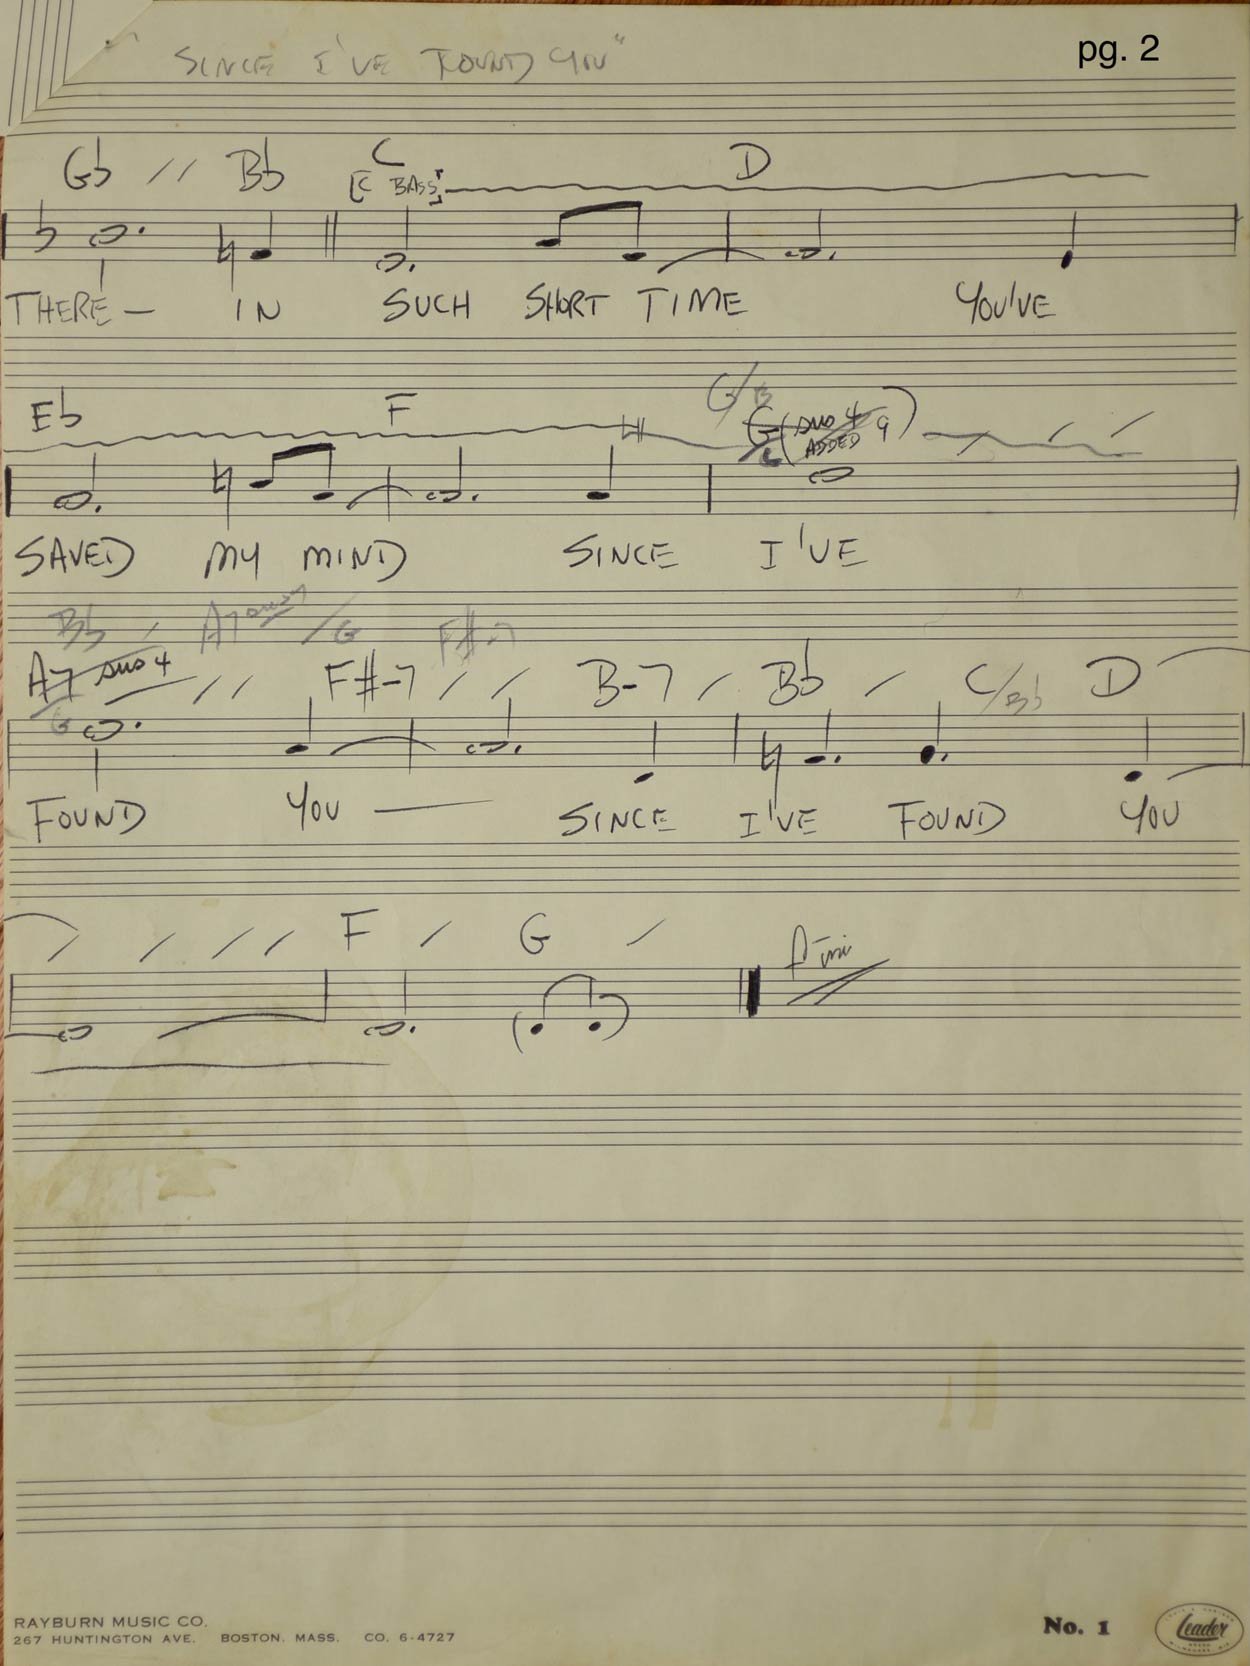 "SINCE I'VE FOUND YOU"
pg. 2
Gb // Bb C D
[C BASS]
THERE — IN SUCH SHORT TIME YOU'VE
G/B
Eb F G (sus 4 9)
ADDED
C
SAVED MY MIND SINCE I'VE
Bb / A7 sus /G F#-7
A7 sus 4 // F#-7 // B-7 / Bb / C/Bb D
G
FOUND YOU — SINCE I'VE FOUND YOU
/ / / / F / G /
Fini
RAYBURN MUSIC CO.
267 HUNTINGTON AVE. BOSTON, MASS. CO. 6-4727
No. 1
Leader